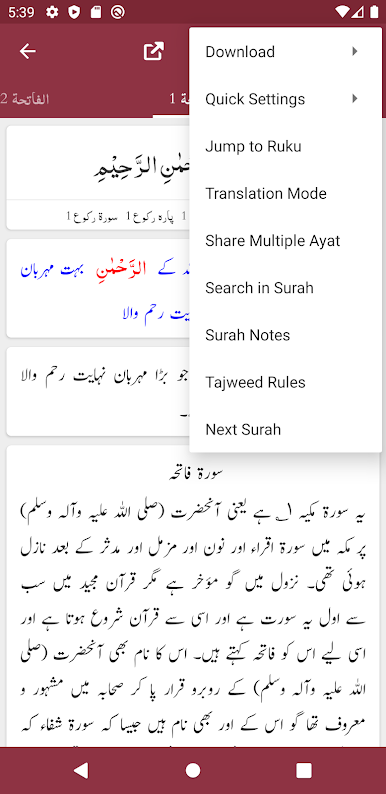 5:39
الفاتحة 2
1
Download
Quick Settings
Jump to Ruku
Translation Mode
Share Multiple Ayat
Search in Surah
Surah Notes
Tajweed Rules
Next Surah
الرَّحِيْمِ
1 پارہ رکوع 1 سورۃ رکوع 1
کے الرَّحْمٰنِ بہت مہربان
رحم والا
جو بڑا مہربان نہایت رحم والا
سورۃ فاتحہ
یہ سورۃ مکیہ ۱؂ ہے یعنی آنحضرت (صلی اللہ علیہ وآلہ وسلم)
پر مکہ میں سورۃ اقراء اور نون اور مزمل اور مدثر کے بعد نازل
ہوئی تھی۔ نزول میں گو مؤخر ہے مگر قرآن مجید میں سب
سے اول یہ سورت ہے اور اسی سے قرآن شروع ہوتا ہے اور
اسی لیے اس کو فاتحہ کہتے ہیں۔ اس کا نام بھی آنحضرت (صلی
اللہ علیہ وآلہ وسلم) کے روبرو قرار پا کر صحابہ میں مشہور و
معروف تھا گو اس کے اور بھی نام ہیں جیسا کہ سورۃ شفاء کہ